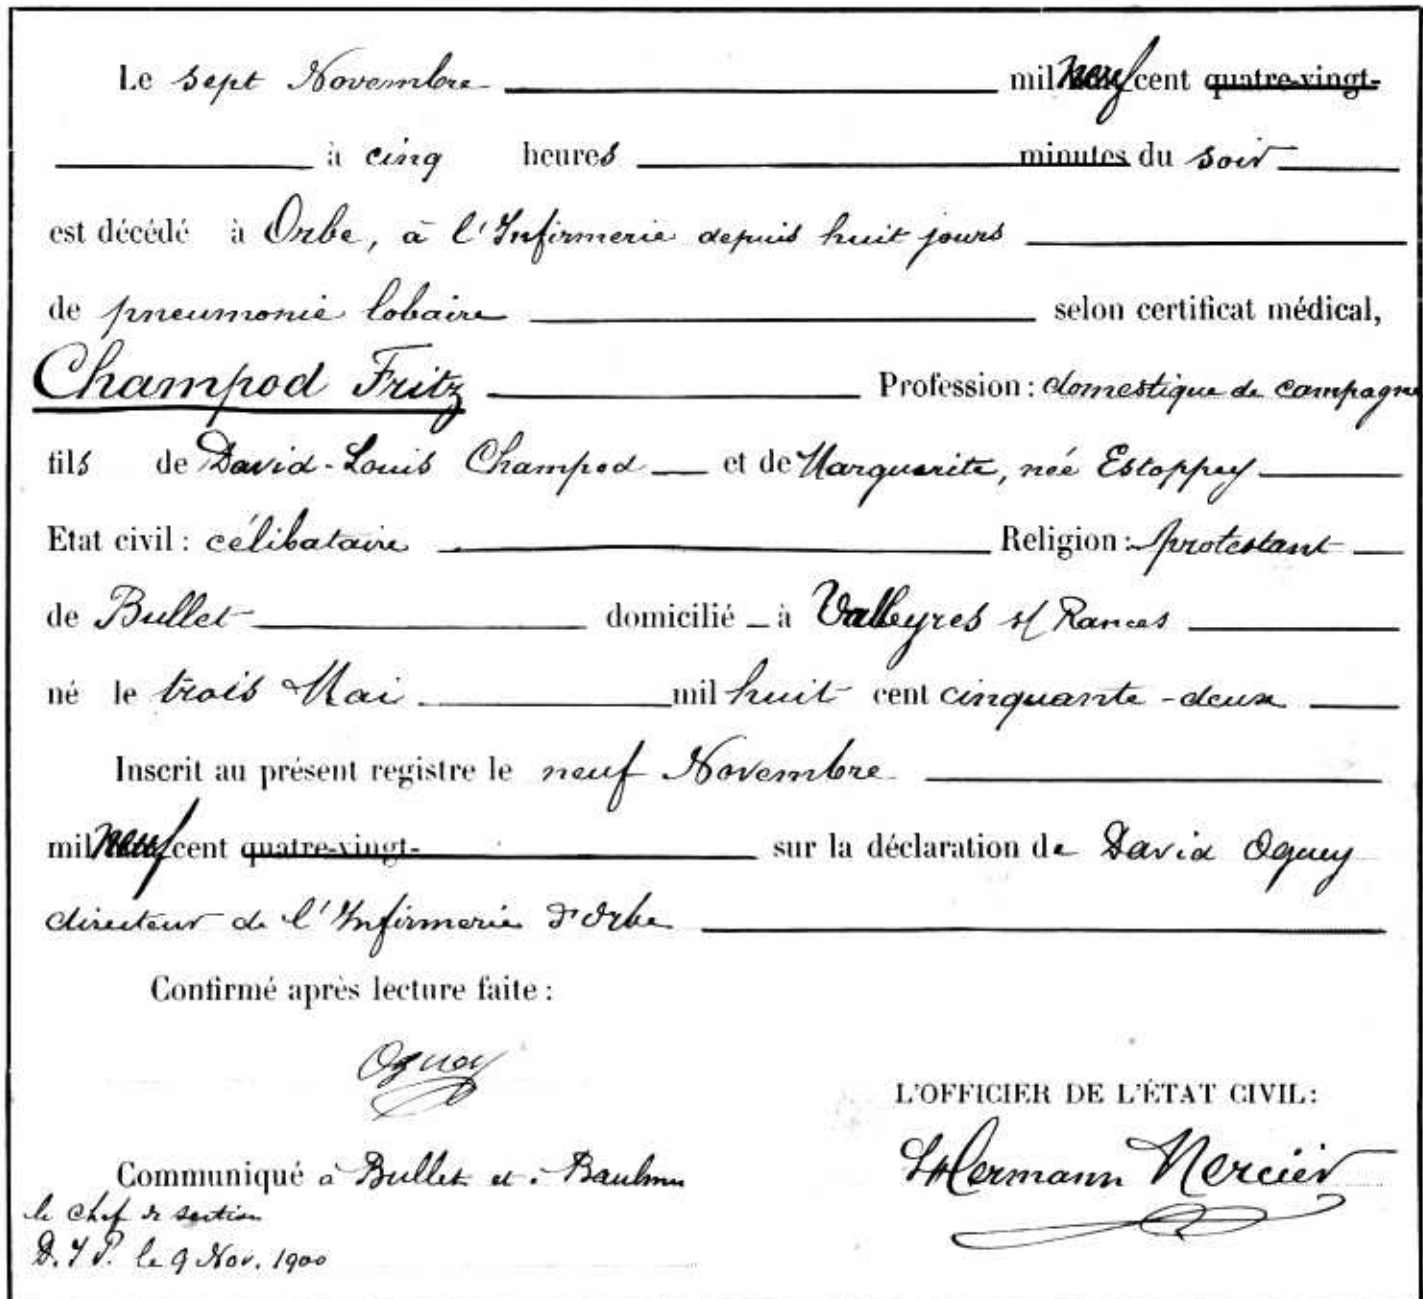 Le sept Novembre mil neuf cent quatre-vingt-
à cinq heures minutes du soir
est décédé à Orbe, à l'Infirmerie depuis huit jours
de pneumonie lobaire selon certificat médical,
Champod Fritz Profession : domestique de campagne
fils de David-Louis Champod et de Marguerite, née Estoppey
Etat civil : célibataire Religion : protestant
de Bullet domicilié à Valleyres s/ Rances
né le trois Mai mil huit cent cinquante-deux
Inscrit au présent registre le neuf Novembre
mil neuf cent quatre-vingt- sur la déclaration de David Oguey
directeur de l'Infirmerie d'Orbe
Confirmé après lecture faite :
Oguey
L'OFFICIER DE L'ÉTAT CIVIL :
Hermann Mercier
Communiqué à Bullet et à Baulmes
le chef de section
le 9 Nov. 1900